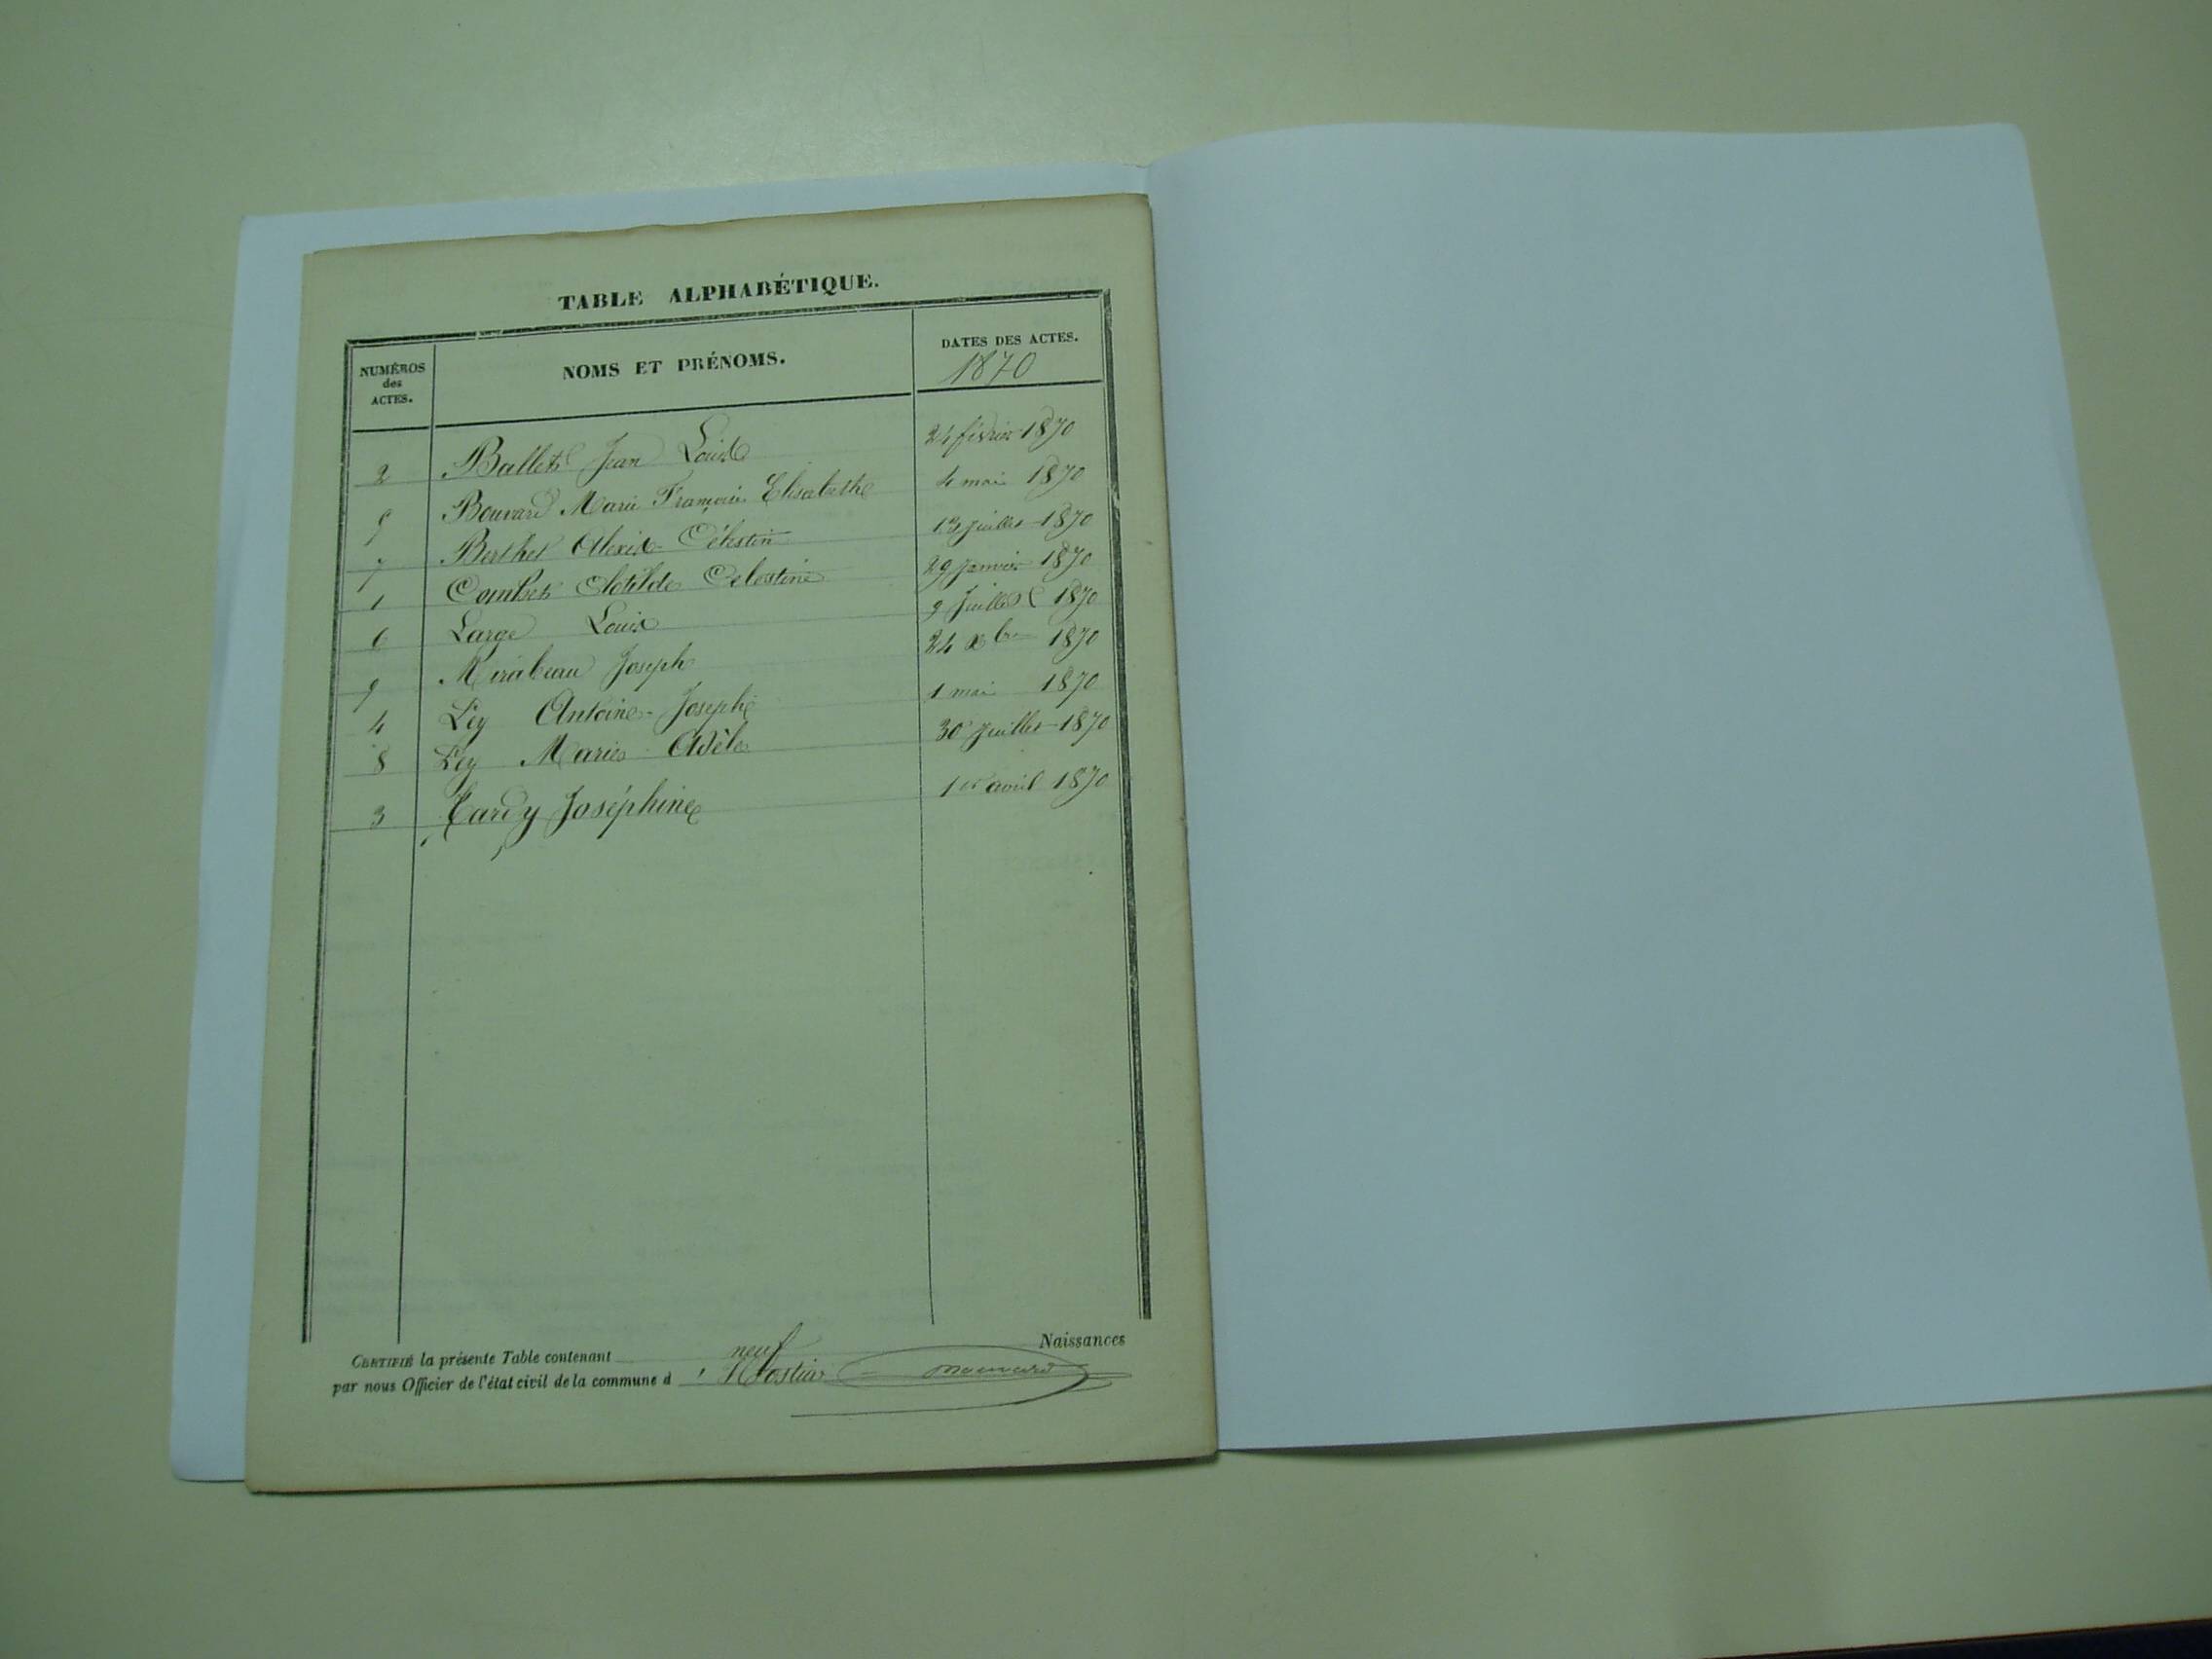 TABLE ALPHABÉTIQUE.
NUMÉROS des ACTES. NOMS ET PRÉNOMS. DATES DES ACTES. 1870
2 Ballet Jean Louis 24 février 1870
5 Bouvard Marie Françoise Elisabeth 4 mai 1870
7 Berthet Alexis Célestin 13 juillet 1870
1 Combet Clotilde Celestine 29 janvier 1870
6 Large Louis 9 Juillet 1870
9 Mirabeau Joseph 24 Xbre 1870
4 Ley Antoine-Joseph 1 mai 1870
8 Ley Marie Adèle 30 juillet 1870
3 Tardy Joséphine 1er avril 1870
CERTIFIÉ la présente Table contenant neuf Naissances
par nous Officier de l'état civil de la commune d' Hostiaz